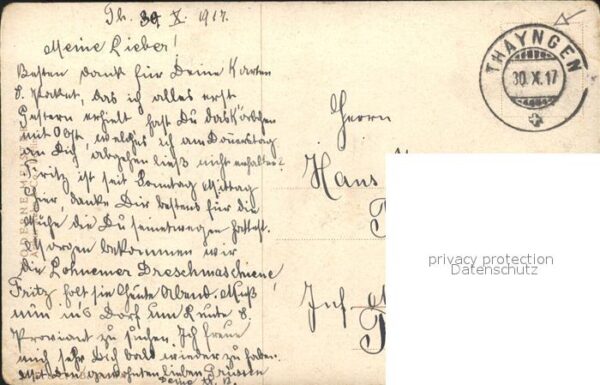 30. X. 1917.
Meine Lieber!
Besten Dank für Deine Karten
& Packet, das ich alles erst
Gestern erhielt hast Du das Körbchen
mit Obst, welches ich am Donnerstag
an Dich abgehen ließ nicht erhalten?
Fritz ist seit Sonntag Mittag
hier, danke Dir bestens für die
Mühe die Du seinetwegen hattest.
Morgen bekommen wir
die Lohnemer Dreschmaschiene,
Fritz holt sie Heute Abend. Muß
nun ins Dorf um Leute &
Proviant zu suchen. Ich freue
mich sehr Dich bald wieder zu haben.
Mit den gewohnten lieben Grüssen
Deine
THAYNGEN
30. X. 17
Herrn
Hans
Inf.
privacy protection
Datenschutz